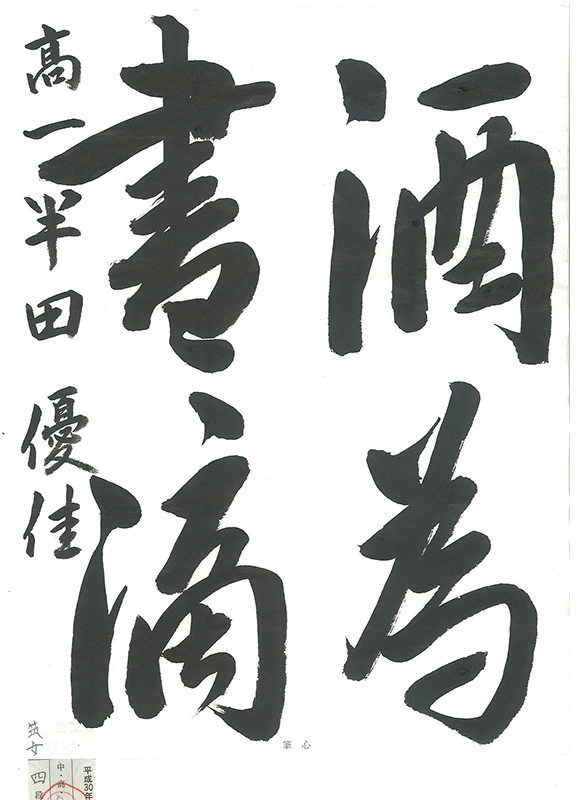 酒為
書滴
高一半田優佳
筆心
筑女
平成30年
中・高・
四